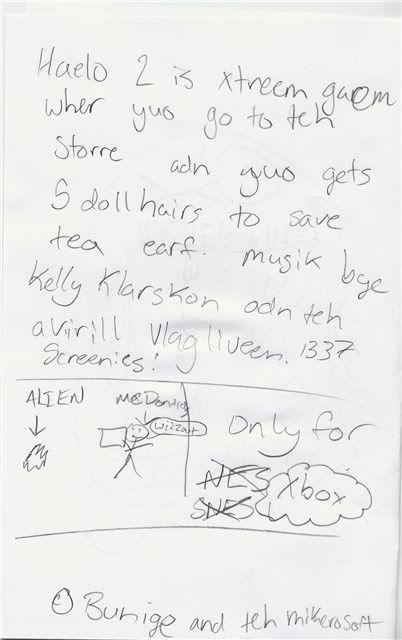 Haelo 2 is xtreem gaem
wher yuo go to teh
storre adn yuo gets
5 dollhairs to save
tea earf. musik bye
Kelly Klarskon adn teh
avirill Vlagliveen. 1337
Screenies:
ALIEN
McDonlds
wizzart
Only for
NES
SNES
Xbox
© Bunige and teh mikerosoft